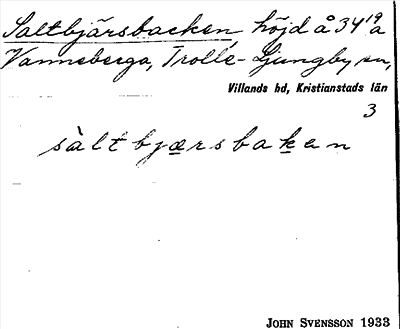 Saltbjärsbacken höjd å 34¹⁹a
Vanneberga, Trolle-Ljungby sn,
Villands hd, Kristianstads län
3
sàltbjærsbaken
JOHN SVENSSON 1933